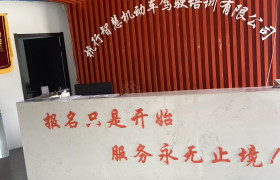 杭行智慧机动车驾驶培训有限公司
报名只是开始
服务永无止境！